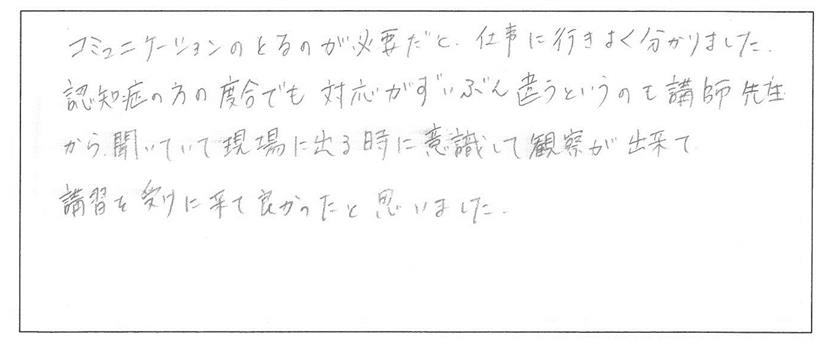 コミュニケーションのとるのが必要だと、仕事に行きよく分かりました。
認知症の方の度合でも対応がずいぶん違うというのも講師先生
から聞いていて現場に出る時に意識して観察が出来て
講習を受けに来て良かったと思いました。